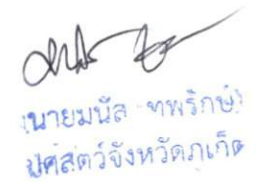 (นายมนัส เทพรักษ์)
ปศุสัตว์จังหวัดภูเก็ต